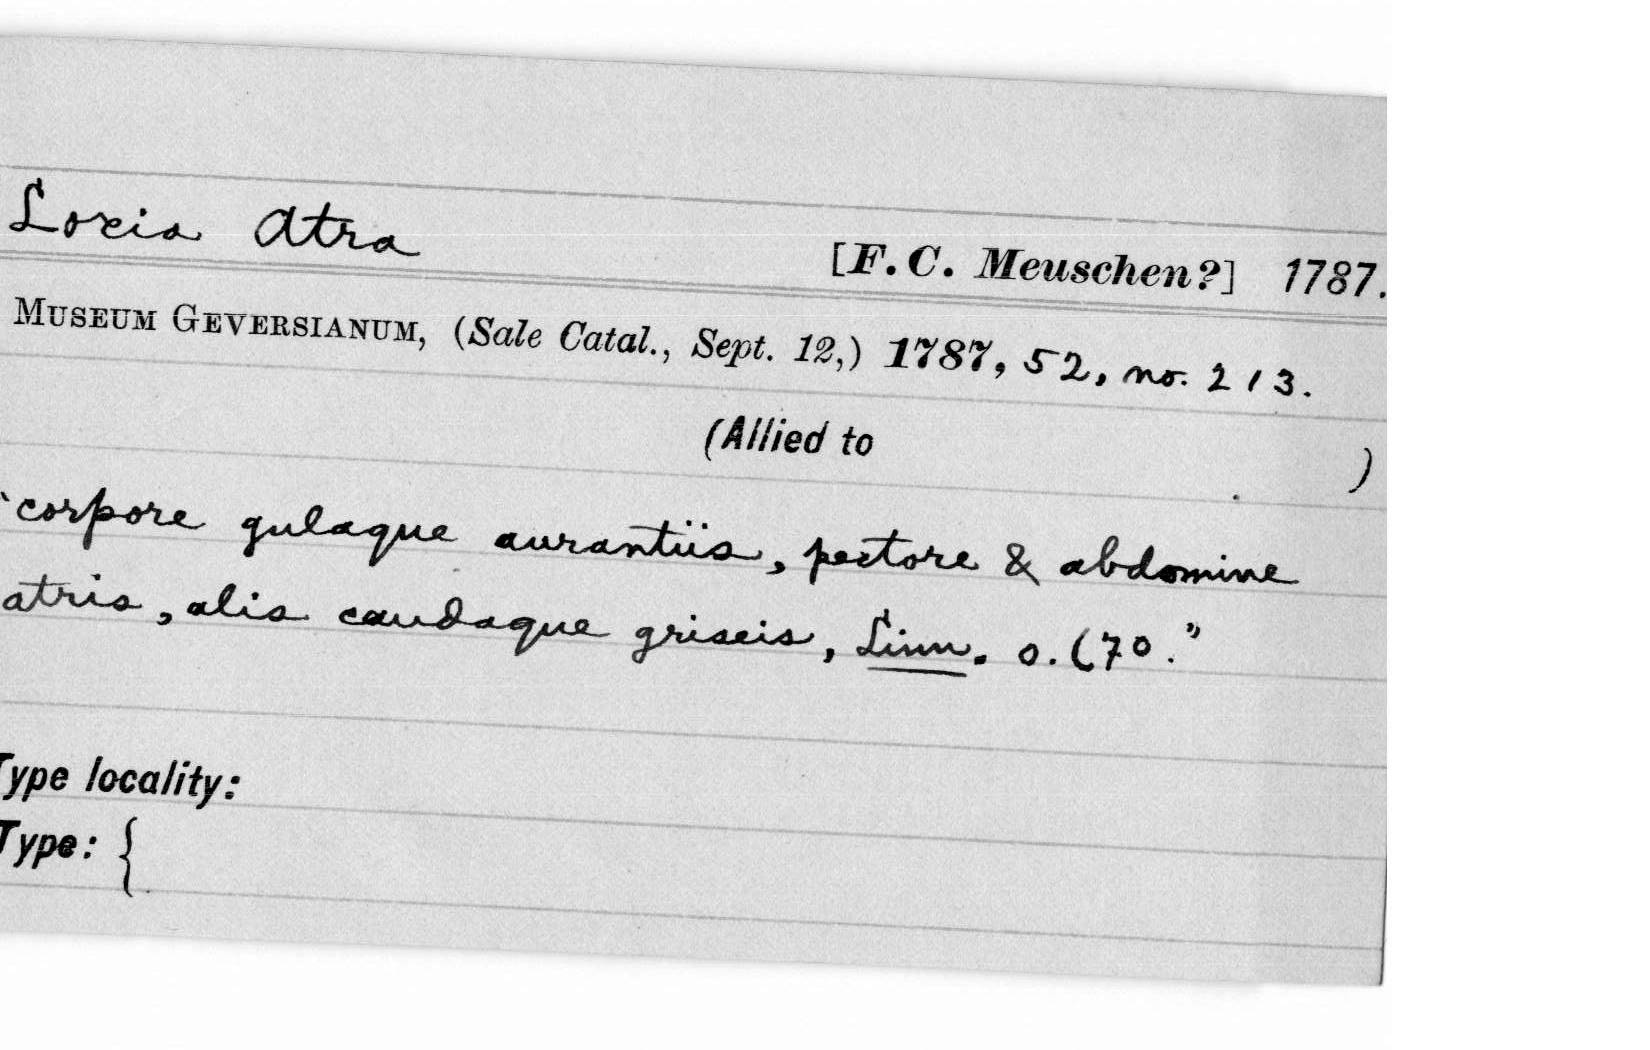 Loxia Atra
[F. C. Meuschen?] 1787.
MUSEUM GEVERSIANUM, (Sale Catal., Sept. 12,) 1787, 52, no. 213.
(Allied to )
"corpore gulaque aurantiis, pectore & abdomine
atris, alis caudaque griseis, Linn. o. (70."
Type locality:
Type: {